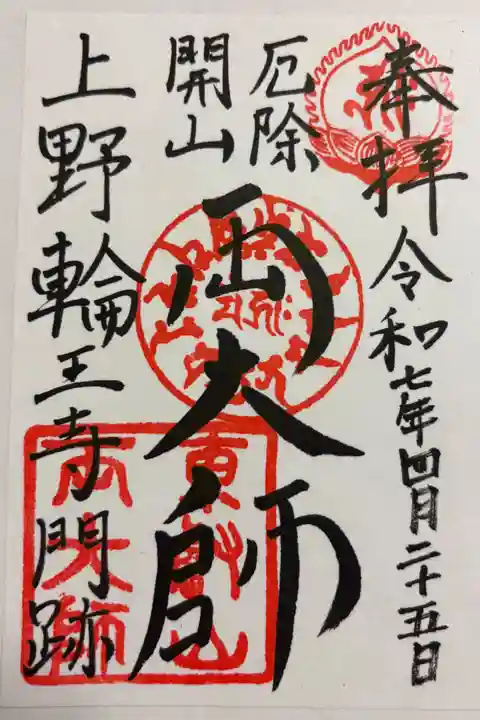 奉拝
令和七年四月二十五日
厄除
開山
両大師
上野輪王寺門跡